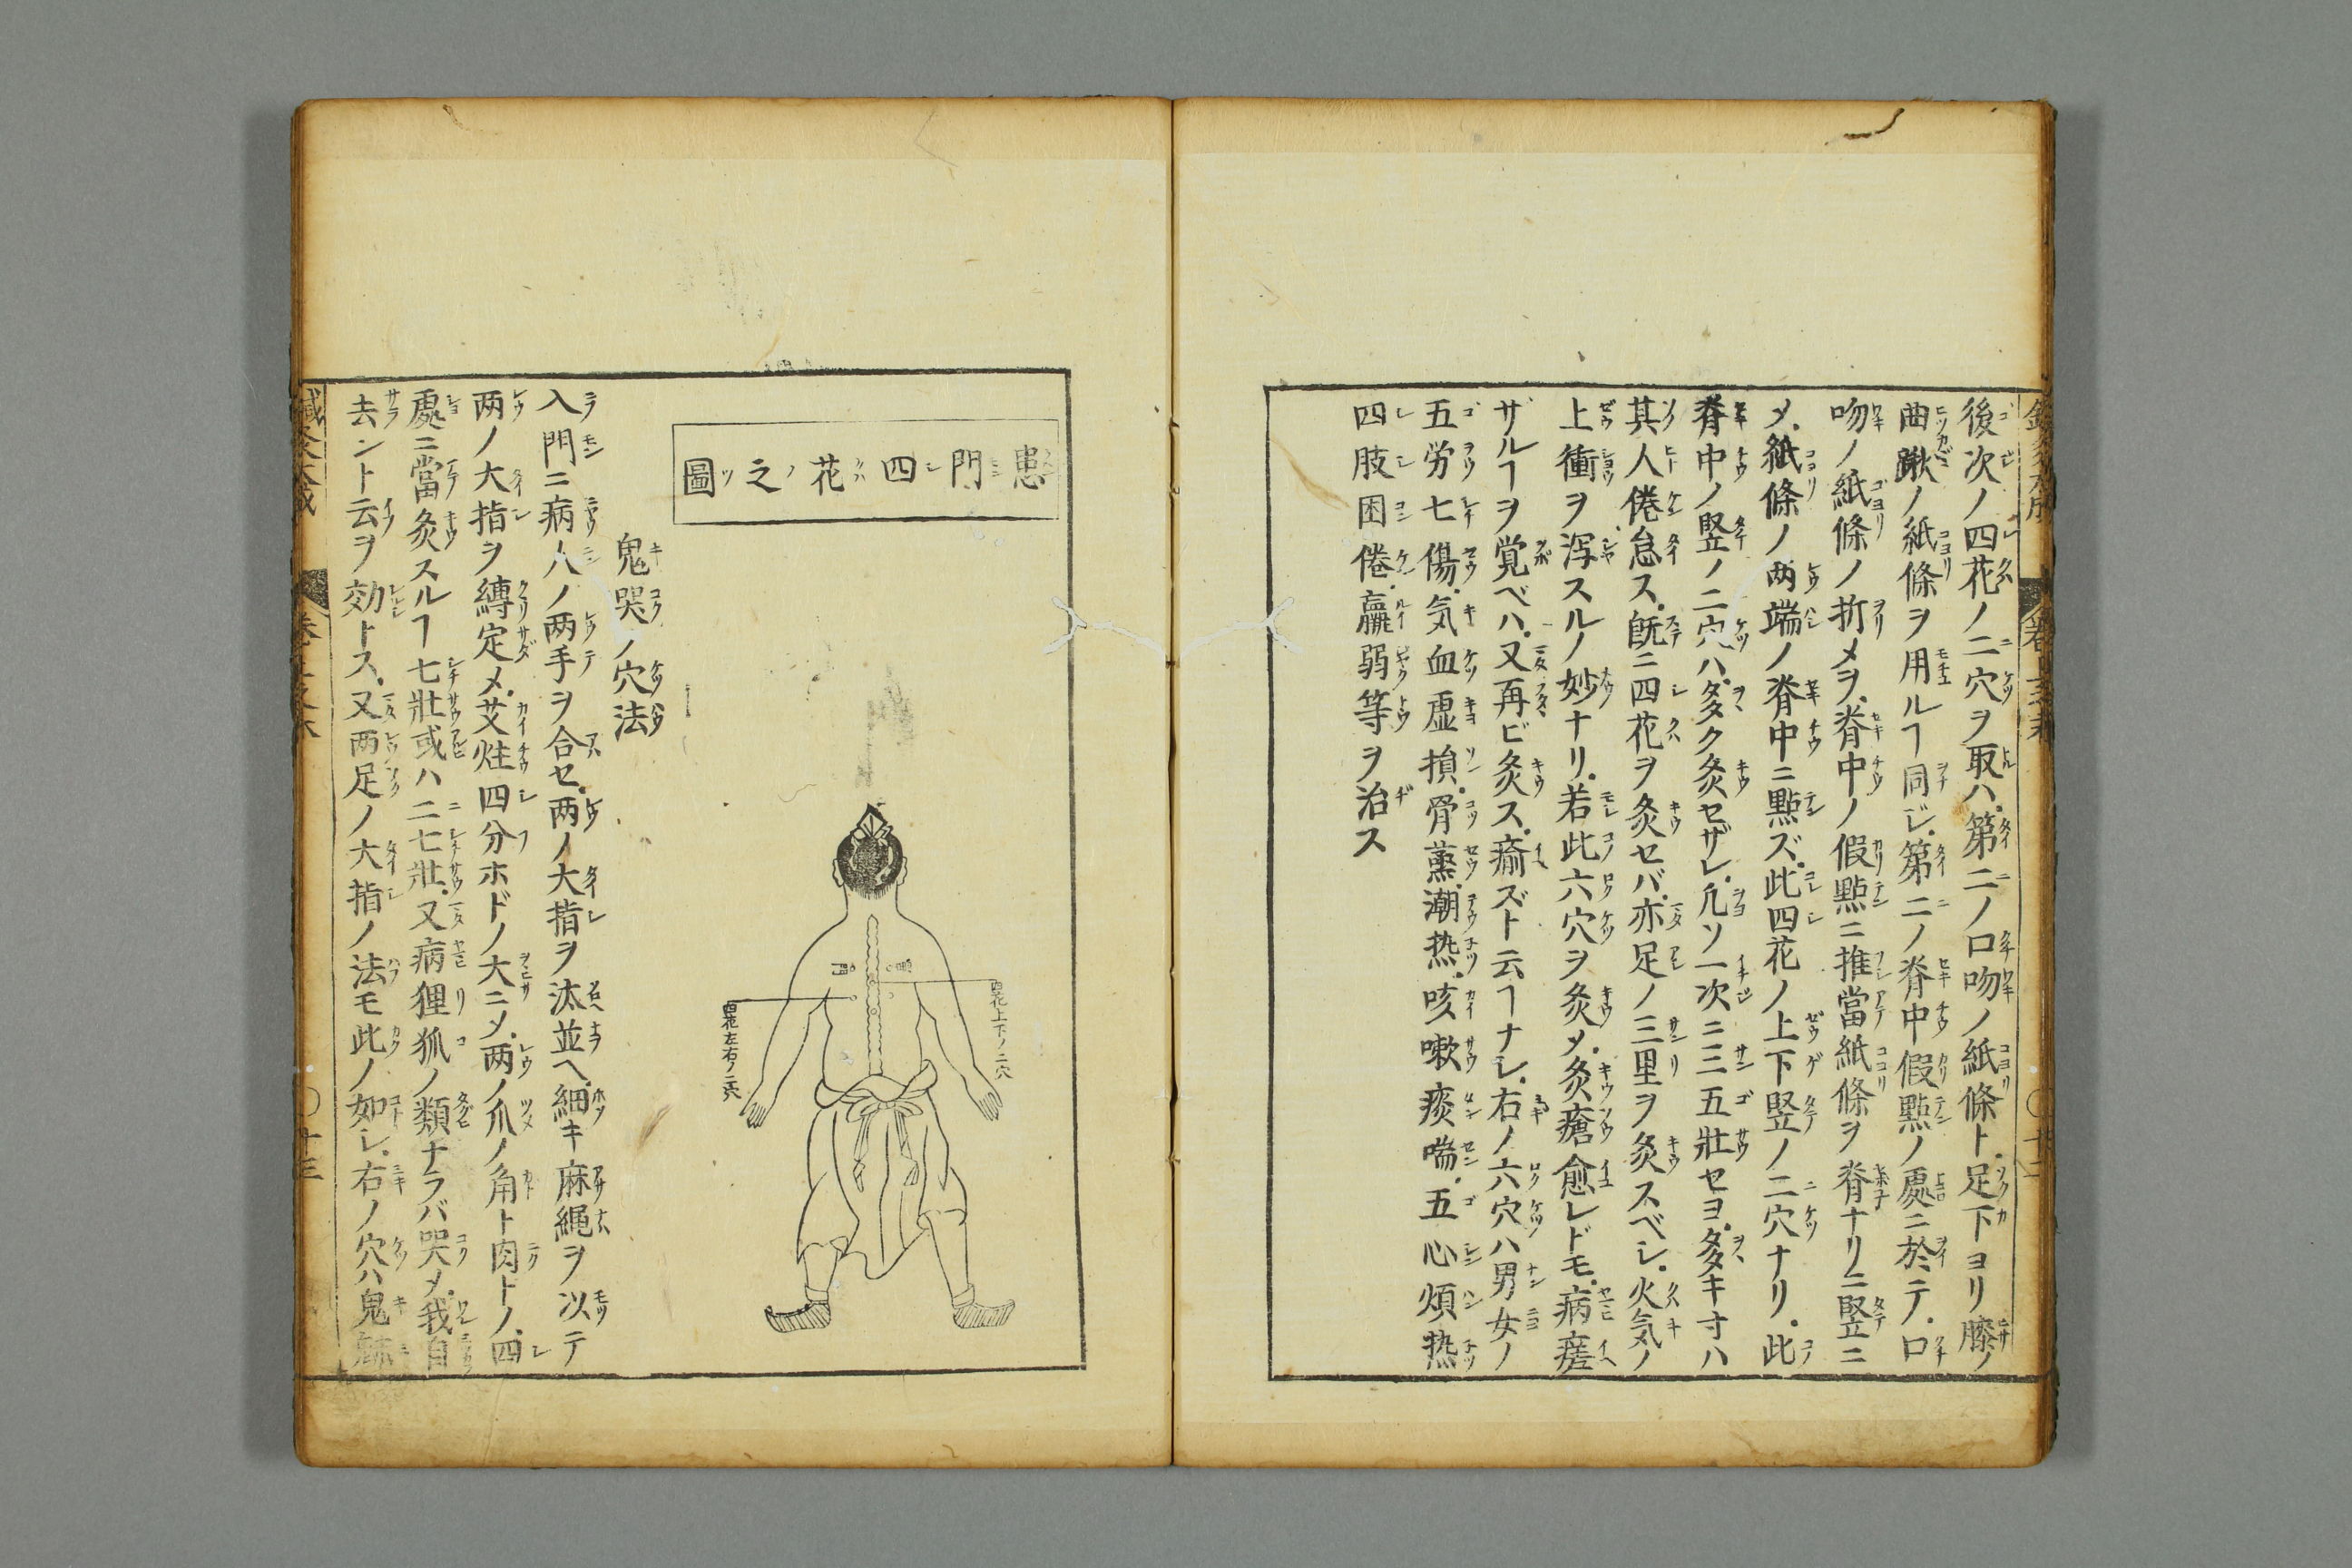 後次ノ四花ノ二穴ヲ取ハ.第二ノ口吻ノ紙條ト.足下ヨリ膝ノ
曲䐐ノ紙條ヲ用ルヿ同ジ.第二ノ脊中假點ノ處ニ於テ.口
吻ノ紙條ノ折メヲ.脊中ノ假點ニ推當紙條ヲ脊ナリニ竪ニ
メ.紙條ノ两端ノ脊中ニ點ズ.此四花ノ上下竪ノ二穴ナリ.此
脊中ノ竪ノ二穴ハ.多ク灸セザレ.凢ソ一次ニ三五壯セヨ.多キ寸ハ
其人倦怠ス.旣ニ四花ヲ灸セバ.亦足ノ三里ヲ灸スベシ.火気ノ
上衝ヲ瀉スルノ妙ナリ.若此六穴ヲ灸メ.灸瘡愈レドモ.病瘥
ザルヿヲ覚ベハ.又再ビ灸ス.瘉ズト云ヿナシ.右ノ六穴ハ男女ノ
五労七傷.気血虚損.骨蒸.潮热.咳嗽痰喘.五心煩热
四肢困倦.羸弱等ヲ治ス
患門四花之圖
四花上下ノ二穴
四花左右ノ二穴
鬼哭ノ穴法
入門ニ病人ノ两手ヲ合セ.两ノ大指ヲ汰並ヘ.細キ麻縄ヲ以テ
两ノ大指ヲ縛定メ.艾炷四分ホドノ大ニメ.两ノ爪ノ角ト肉トノ.四
處ニ當灸スルヿ七壯或ハ二七壯.又病狸狐ノ類ナラバ哭メ.我自
去ント云ヲ効トス.又两足ノ大指ノ法モ此ノ如シ.右ノ穴ハ鬼